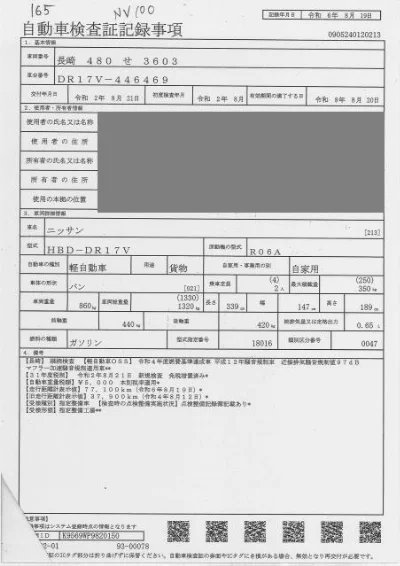 165 NV100
記録年月日 令和 6年 8月 19日
自動車検査証記録事項
0905240120213
1. 基本情報
車両番号 長崎 480 せ 3603
車台番号 DR17V-446469
交付年月日 令和 2年 8月 21日 初度検査年月 令和 2年 8月 有効期間の満了する日 令和 8年 8月 20日
2. 使用者・所有者情報
使用者の氏名又は名称
使用者の住所
所有者の氏名又は名称
所有者の住所
使用の本拠の位置
3. 車両詳細情報
車名 ニッサン [213]
型式 HBD-DR17V 原動機の型式 R06A
自動車の種別 軽自動車 用途 貨物 自家用・事業用の別 自家用
車体の形状 バン [021] 乗車定員 (4) 2人 最大積載量 (250) 350kg
車両重量 860kg 車両総重量 (1330) 1320kg 長さ 339cm 幅 147cm 高さ 189cm
前軸重 440kg 後軸重 420kg 総排気量又は定格出力 0.65L
燃料の種類 ガソリン 型式指定番号 18016 類別区分番号 0047
4. 備考
[長崎] 継続検査 [軽自動車OSS] 令和4年度燃費基準達成車 平成12年騒音規制車 近接排気騒音規制値97dB
マフラー加速騒音規制適用車**
[31年度税制] 令和2年8月21日 新規検査 免税措置済み*
[自動車重量税額] ¥5,000 本則税率適用*
[走行距離計表示値] 77,100km (令和6年8月19日)*
[旧走行距離計表示値] 37,900km (令和4年8月12日)*
[受検種別] 指定整備車 [検査時の点検整備実施状況] 点検整備記録簿記載あり*
[受検形態] 指定整備工場**
注意事項]
事項はシステム登録時点の情報となります
ID K9569WP9820150
-01 93-00078